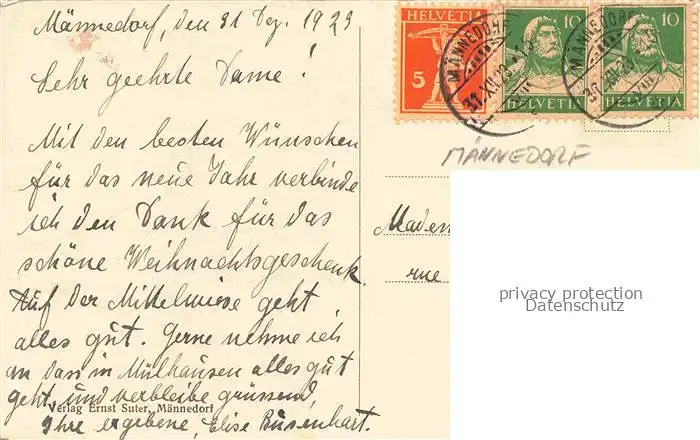 Männedorf, den 31 Dez. 1923
Sehr geehrte Dame!
Mit den besten Wünschen
für das neue Jahr verbinde
ich den Dank für das
schöne Weihnachtsgeschenk.
Auf der Mittelwiese geht
alles gut. Gerne nehme ich
an dass in Mülhausen alles gut
geht, und verbleibe grüssend,
Ihre ergebene, Elise Busenhart.
Verlag Ernst Suter, Männedorf
HELVETIA
5
10
HELVETIA
10
HELVETIA
MÄNNEDORF
31.XII.23
MÄNNEDORF
MÄNNEDORF
Madem
rue
privacy protection
Datenschutz